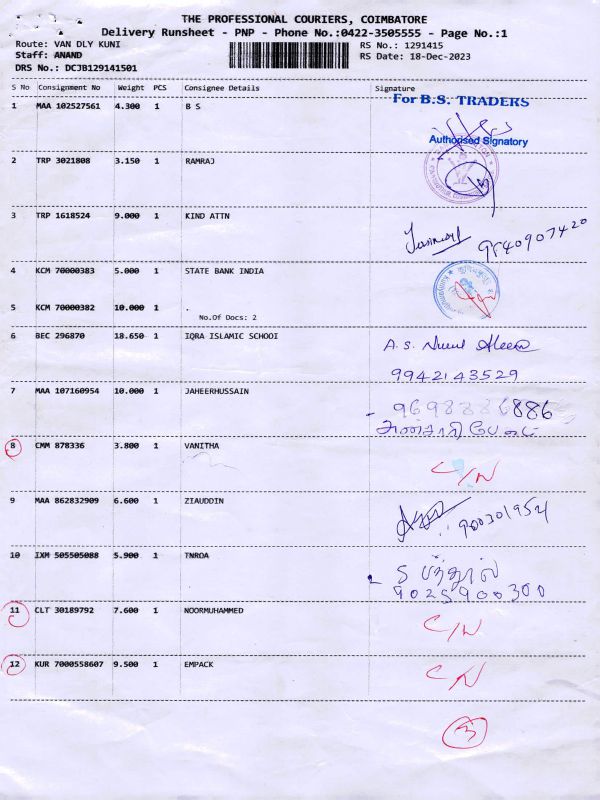 THE PROFESSIONAL COURIERS, COIMBATORE
Delivery Runsheet - PNP - Phone No.:0422-3505555 - Page No.:1
Route: VAN DLY KUNI RS No.: 1291415
Staff: ANAND RS Date: 18-Dec-2023
DRS No.: DCJB129141501
S No Consignment No Weight PCS Consignee Details Signature
For B.S. TRADERS
1 MAA 102527561 4.300 1 B S
Authorised Signatory
2 TRP 3021808 3.150 1 RAMRAJ
3 TRP 1618524 9.000 1 KIND ATTN
9840907420
4 KCM 70000383 5.000 1 STATE BANK INDIA
5 KCM 70000382 10.000 1 .
No.Of Docs: 2
6 BEC 296870 18.650 1 IQRA ISLAMIC SCHOOl
A.S. Nurul Aleem
9942143529
7 MAA 107160954 10.000 1 JAHEERHUSSAIN
8 CMM 878336 3.800 1 VANITHA
C/N
9 MAA 862832909 6.600 1 ZIAUDDIN
10 IXM 505505088 5.900 1 TNRDA
9025900300
11 CLT 30189792 7.600 1 NOORMUHAMMED
C/N
12 KUR 7000558607 9.500 1 EMPACK
C/N